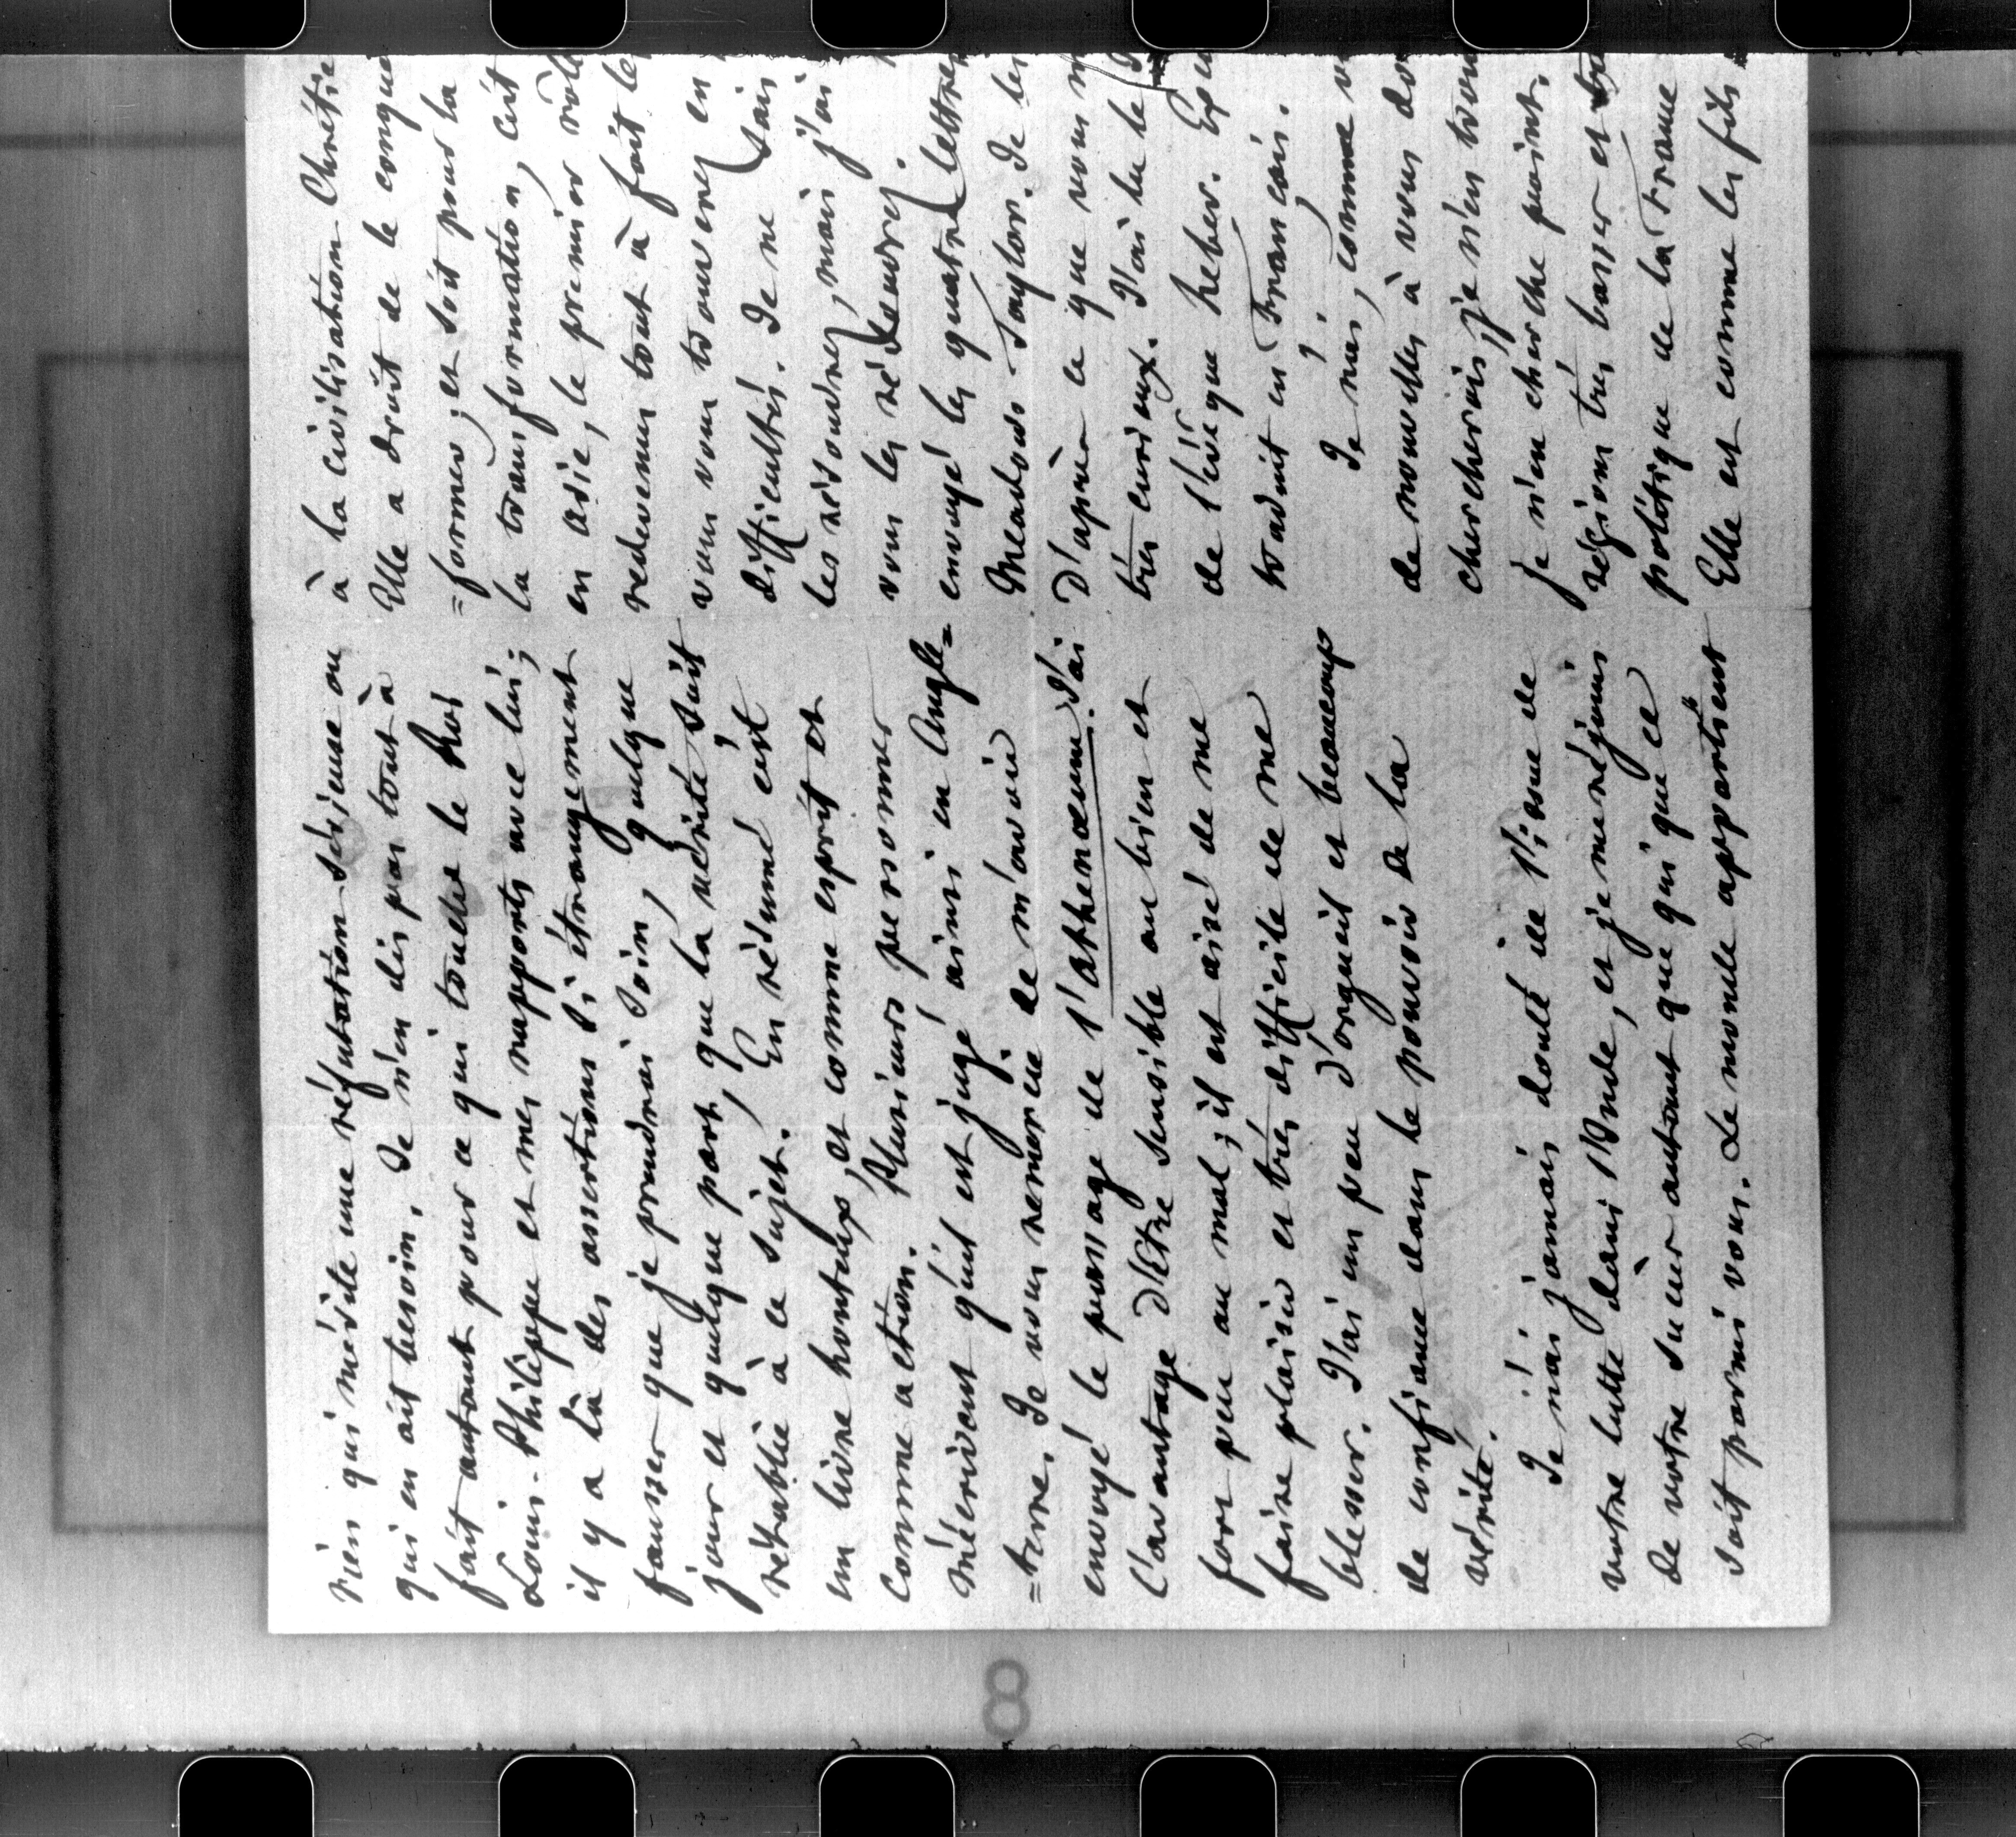 rien qui mérite une réfutation sérieuse ou
qui en ait besoin. Je n'en dis pas tout à
fait autant pour ce qui touche le Roi
Louis-Philippe et mes rapports avec lui ;
il y a là des assertions si étrangement
fausses que je prendrai soin, quelque
jour et quelque part, que la vérité soit
rétablie à ce sujet. En résumé c'est
un livre honteux, et comme esprit et
comme action. Plusieurs personnes
m'écrivent qu'il est jugé ainsi en Angle=
=terre. Je vous remercie de m'avoir
envoyé le passage de l'Athenœum. J'ai
l'avantage d'être sensible au bien et
fort peu au mal ; il est aisé de me
faire plaisir et très difficile de me
blesser. J'ai un peu d'orgueil et beaucoup
de confiance dans le pouvoir de la
vérité.
Je n'ai jamais douté de l'issue de
votre lutte dans l'Inde, et je me réjouis
de votre succès autant que qui que ce
soit parmi vous. Le monde appartient
à la civilisation Chrétie
Elle a droit de le conqué
=former, et soit pour la
la transformation, c'est
en Asie, le premier rôle
redevenus tout à fait le
vous vous trouverez en
difficultés. Je ne sais
les résoudrez, mais j'ai
vous les résoudrez.
envoyé les quatre lettres
Meadows Taylor. Je les
D'après ce que vous m
très curieux. J'ai lu le
de l'évêque heber.
traduit en Français.
Je n'ai, comme v
de nouvelles à vous do
chercherais, je n'en trou
je n'en cherche point.
régions très basses et
politique de la France
Elle est comme les fils
8